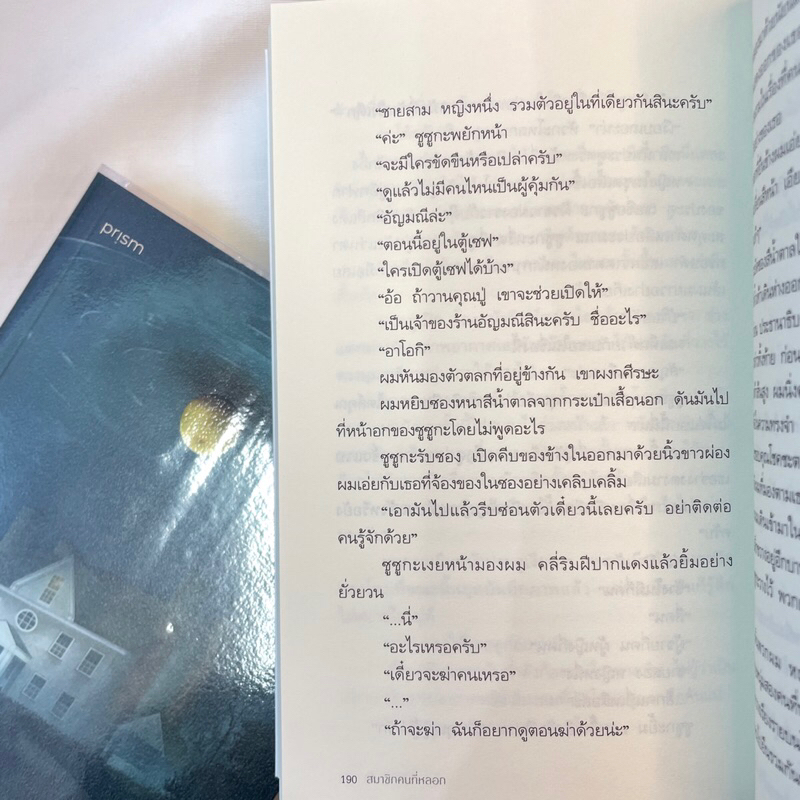 prism
“ชายสาม หญิงหนึ่ง รวมตัวอยู่ในที่เดียวกันสินะครับ”
“ค่ะ” ชูซูกะพยักหน้า
“จะมีใครขัดขืนหรือเปล่าครับ”
“ดูแล้วไม่มีคนไหนเป็นผู้คุ้มกัน”
“อัญมณีล่ะ”
“ตอนนี้อยู่ในตู้เซฟ”
“ใครเปิดตู้เซฟได้บ้าง”
“อ้อ ถ้าวานคุณปู่ เขาจะช่วยเปิดให้”
“เป็นเจ้าของร้านอัญมณีสินะครับ ชื่ออะไร”
“อาโอกิ”
ผมหันมองตัวตลกที่อยู่ข้างกัน เขาผงกศีรษะ
ผมหยิบซองหนาสีน้ำตาลจากกระเป๋าเสื้อนอก ดันมันไป
ที่หน้าอกของชูซูกะโดยไม่พูดอะไร
ชูซูกะรับซอง เปิดคีบของข้างในออกมาด้วยนิ้วขาวผ่อง
ผมเอ่ยกับเธอที่จ้องของในซองอย่างเคลิบเคลิ้ม
“เอามันไปแล้วรีบซ่อนตัวเดี๋ยวนี้เลยครับ อย่าติดต่อ
คนรู้จักด้วย”
ชูซูกะเงยหน้ามองผม คลี่ริมฝีปากแดงแล้วยิ้มอย่าง
ยั่วยวน
“...นี่”
“อะไรเหรอครับ”
“เดี๋ยวจะฆ่าคนเหรอ”
“...”
“ถ้าจะฆ่า ฉันก็อยากดูตอนฆ่าด้วยน่ะ”
190 สมาชิกคนที่หลอก